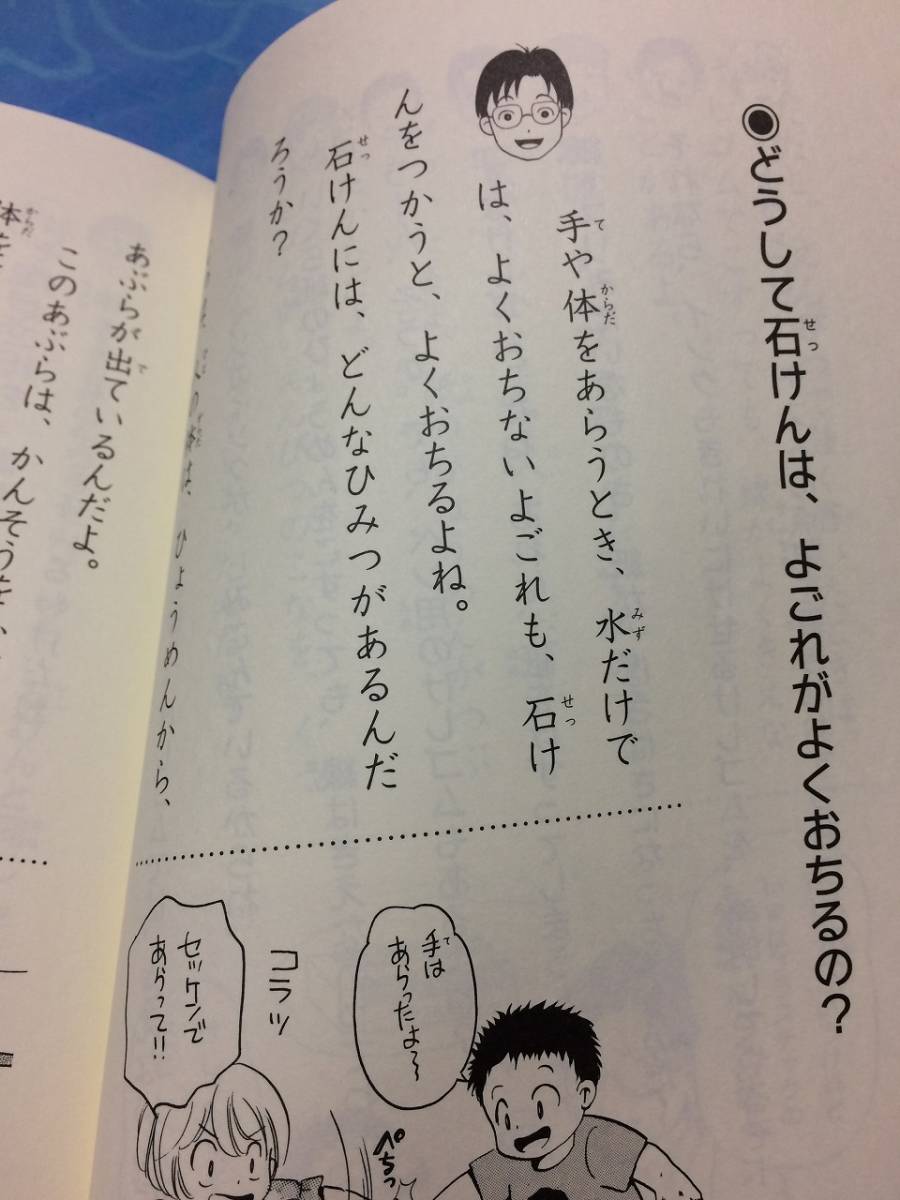 ◉どうして石けんは、よごれがよくおちるの？
せっ
手や体をあらうとき、水だけで
て
からだ
みず
は、よくおちないよごれも、石け
せっ
んをつかうと、よくおちるよね。
石けんには、どんなひみつがあるんだ
せっ
ろうか？
は、ひょうめんから、
あぶらが出ているんだよ。
で
このあぶらは、かんそうを、
体を
からだ
手は
て
あらったよ～
コラッ
セッケンで
あらって!!
ぺちっ